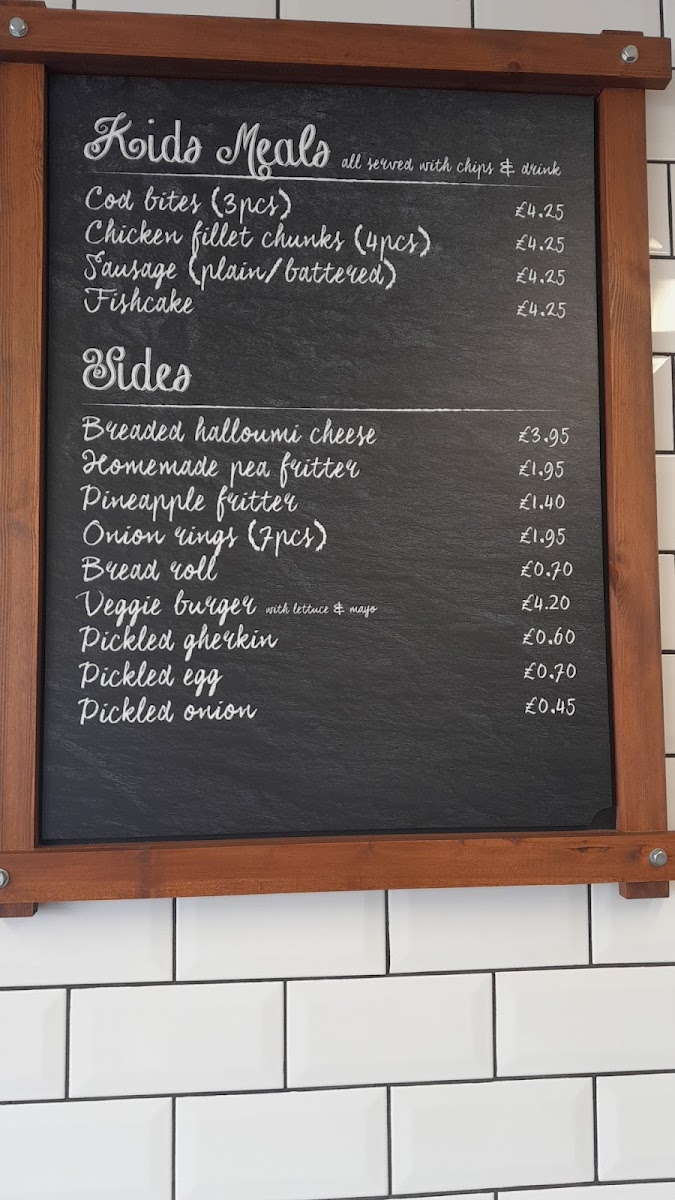 Kids Meals all served with chips & drink
Cod bites (3pcs) £4.25
Chicken fillet chunks (4pcs) £4.25
Sausage (plain/battered) £4.25
Fishcake £4.25
Sides
Breaded halloumi cheese £3.95
Homemade pea fritter £1.95
Pineapple fritter £1.40
Onion rings (7pcs) £1.95
Bread roll £0.70
Veggie burger with lettuce & mayo £4.20
Pickled gherkin £0.60
Pickled egg £0.70
Pickled onion £0.45